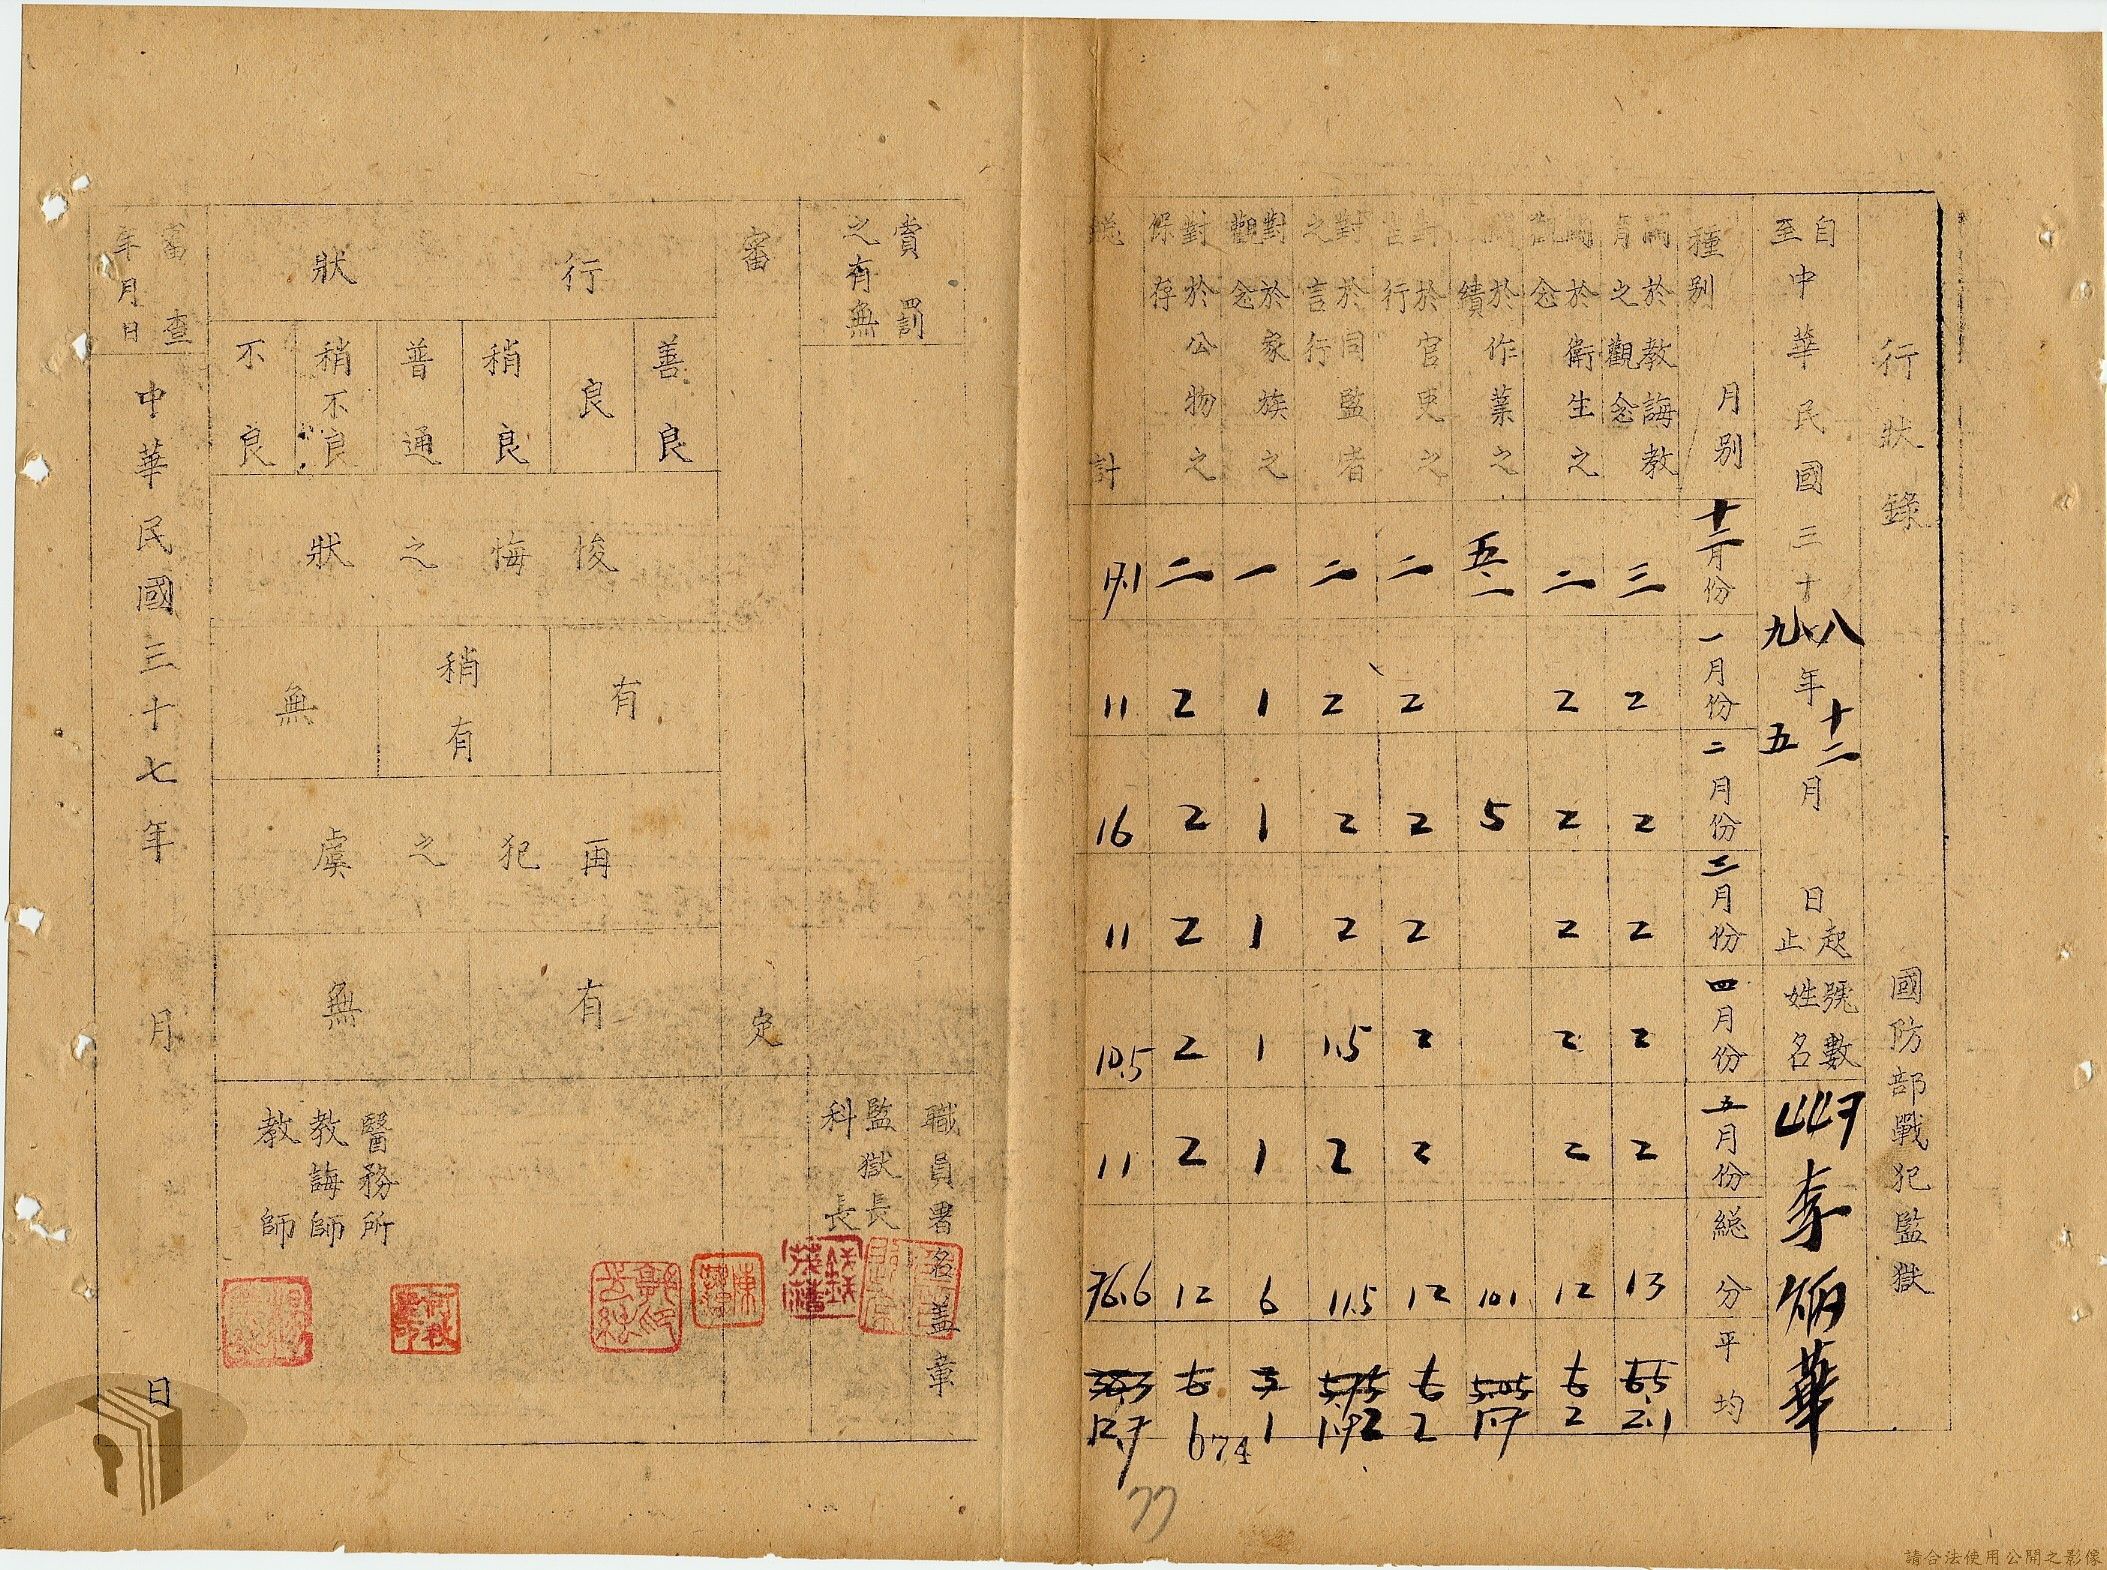 行狀錄
國防部戰犯監獄
自中華民國三十八年十二月 日起
至 九 五 止
號數 447
姓名 李炳華
種別 月別 十二月份 一月份 二月份 三月份 四月份 五月份 総分 平均
於教誨教育之觀念 三 2 2 2 2 2 13 6.5 2.1
於衛生之觀念 二 2 2 2 2 2 12 6 2
於作業之績 五.一 5 10.1 5.05 1.7
對於官吏之言行 二 2 2 2 2 2 12 6 2
對於同監者之言行 二 2 2 2 1.5 2 11.5 5.75 1.92
對於家族之觀念 一 1 1 1 1 1 6 3 1
對於公物之保存 二 2 2 2 2 2 12 6
総計 17.1 11 16 11 10.5 11 76.6 38.3 12.7
674
77
賞罰之有無
職員署名蓋章
監獄長
科長
醫務所
教誨師
教師
審定
行狀
善良
良
稍良
普通
稍不良
不良
悛悔之狀
有
稍有
無
再犯之虞
有
無
審查年月日
中華民國三十七年 月 日
請合法使用公開之影像